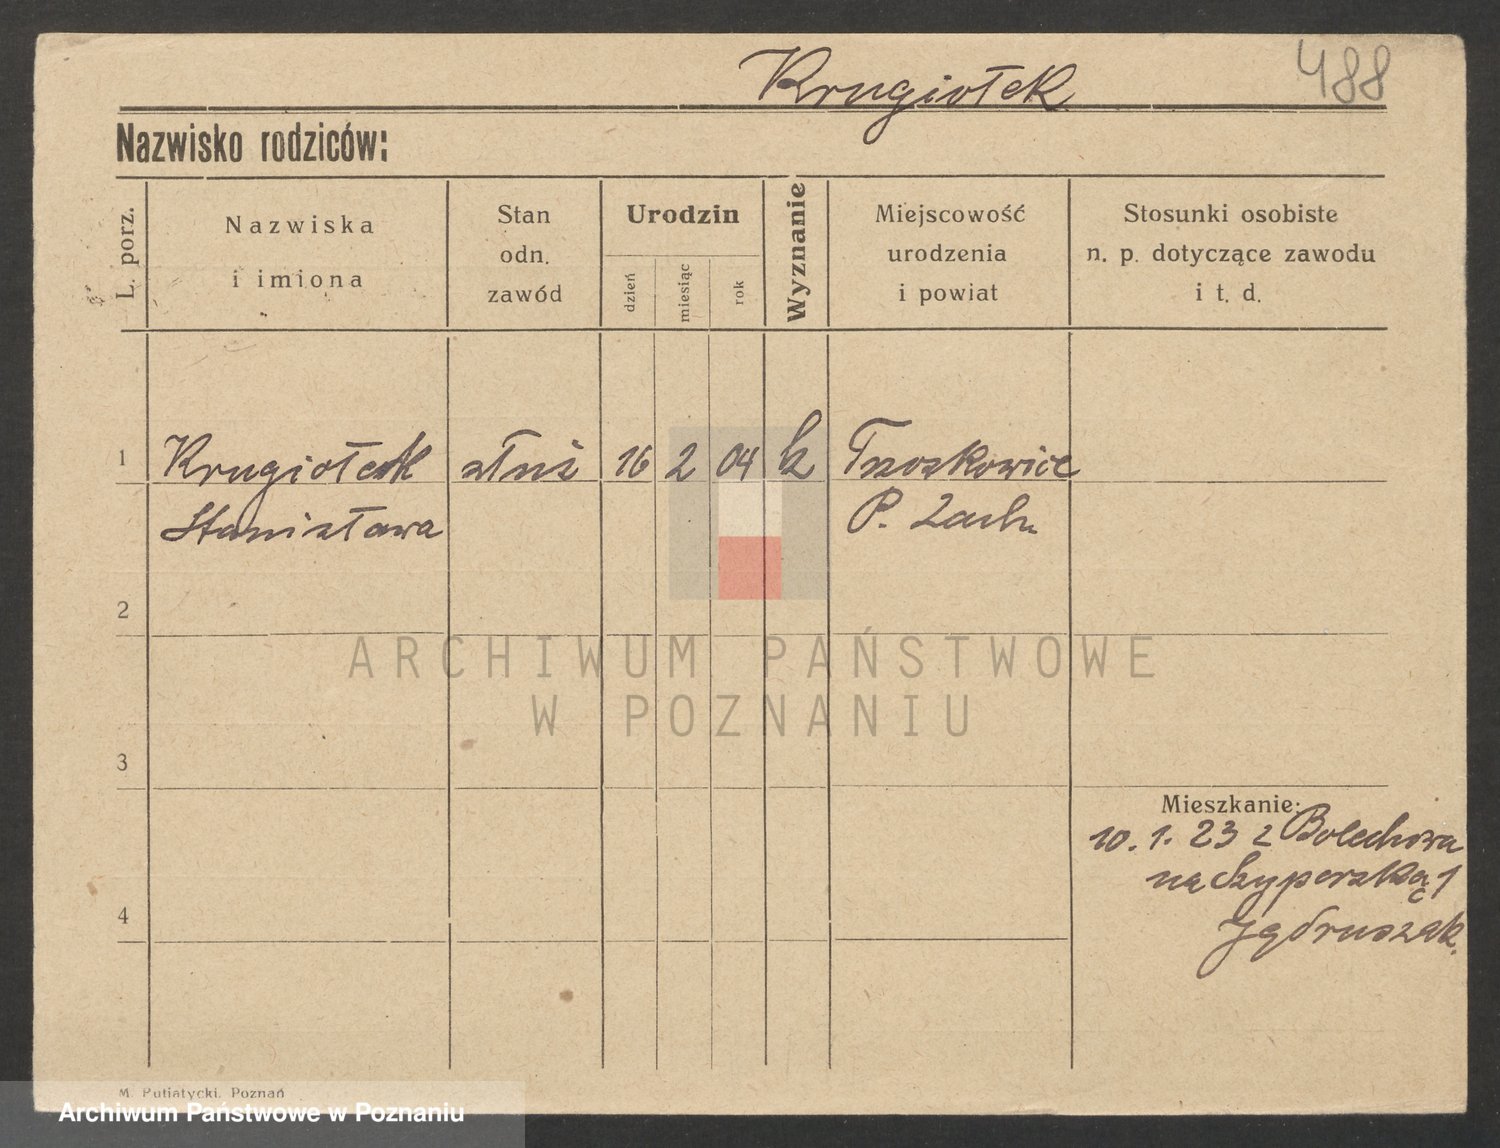 Krugiołek
488
Nazwisko rodziców:
L. porz.
Nazwiska
i imiona
Stan
odn.
zawód
Urodzin
dzień
miesiąc
rok
Wyznanie
Miejscowość
urodzenia
i powiat
Stosunki osobiste
n. p. dotyczące zawodu
i t. d.
1 Krugiołek służ 16 2 04 k
Stanisława P. Zach.
2
ARCHIWUM PAŃSTWOWE
W POZNANIU
3
Mieszkanie:
10. 1. 23 z Bolechowa
na Szyperską 1
4
M. Putiatycki. Poznań
Archiwum Państwowe w Poznaniu